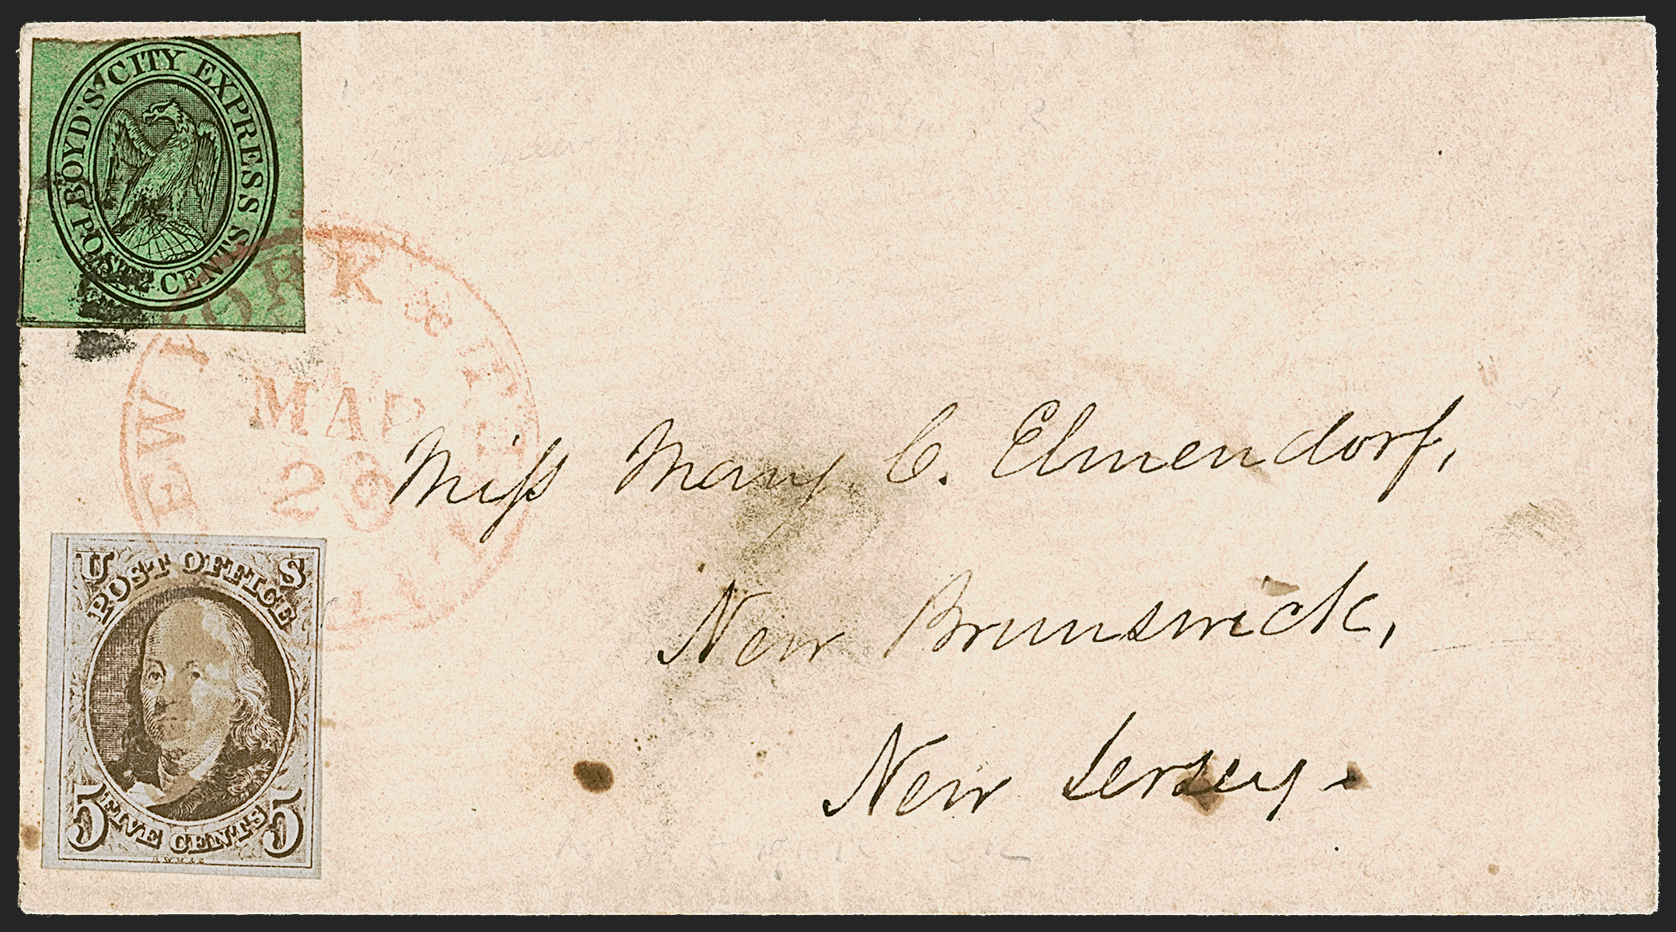 BOYD'S CITY EXPRESS
POST 2 CENTS
NEW YORK &
MAR
Miss Mary C. Elmendorf,
New Brunswick,
New Jersey.
U S
POST OFFICE
5 FIVE CENTS 5